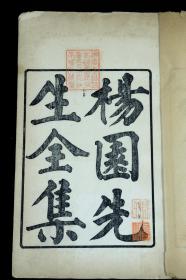 楊園先
生全集